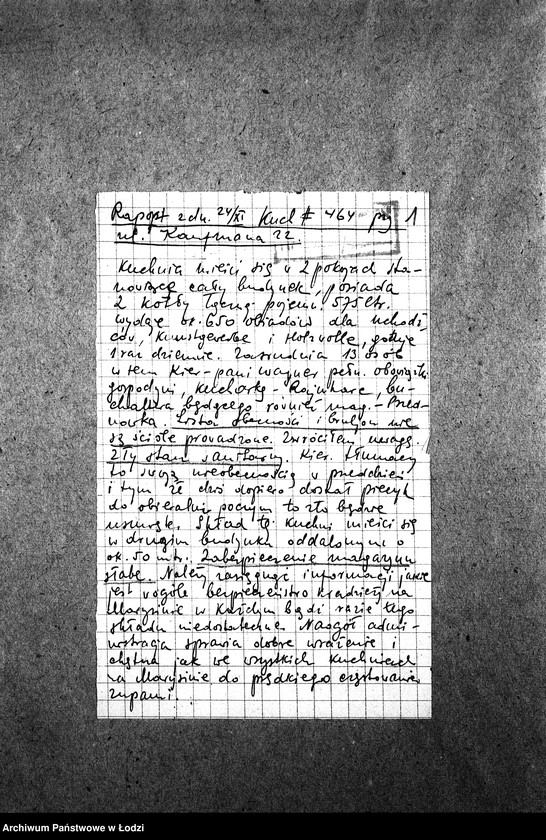 Raport z dn. 24/XI Kuch # 464 przy 1
ul. Kaufmana 22.
Kuchnia mieści się w 2 pokojach sta-
nowiące cały budynek, posiada
2 kotły łączng. pojemn. 575 ltr.
wydaje ok. 650 obiadów dla uchodź,
ców, Kunstgewerbe i Holzwolle, gotuje
1 raz dziennie. Zatrudnia 13 osób
w tem Kier- pani pełn. obowiązki
gospodyni, kucharkę - buch-
haltera będącego również mag. - Przed-
Lista obecności i bruljon nie
są ściśle prowadzone. Zwróciłem uwagę
zły stan sanitarny. Kier. tłumaczy
to swoją nieobecnością w przeddzień
i tym że dziś dopiero dostał piecyk
do obieralni poczym to zło będzie
usunięte. Skład tej kuchni mieści się
w drugim budynku oddalonym o
ok. 50 mtr. Zabezpieczenie magazynu
słabe. Należy zasięgnąć informacji jakie
jest wogóle bezpieczeństwo kradzieży na
Marysinie w każdym bądź razie tego
składu niedostateczne. Naogół admi-
nistracja sprawia dobre wrażenie i
chętna jak we wszystkich kuchniach
na Marysinie do prędkiego częstowania
zupami.
Archiwum Państwowe w Łodzi